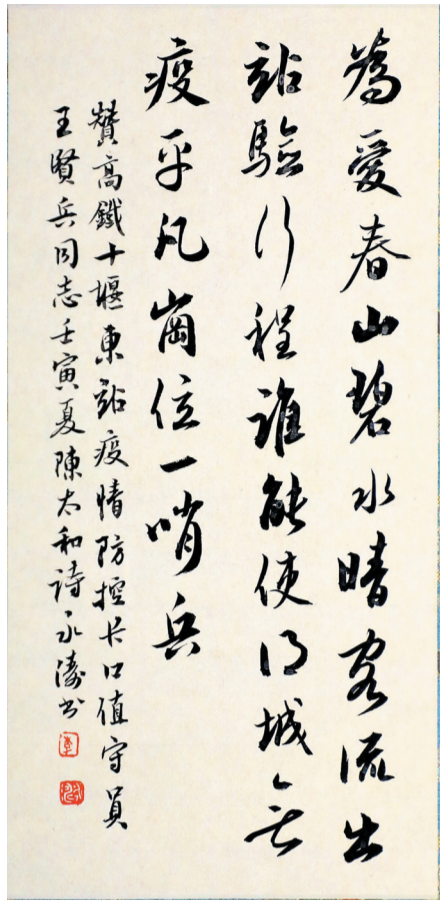 為愛春山碧水晴客流出
站驗行程誰能使得城無
疫平凡崗位一哨兵
贊高鐵十堰東站疫情防控卡口值守員
王賢兵同志壬寅夏陳太和詩永濤书